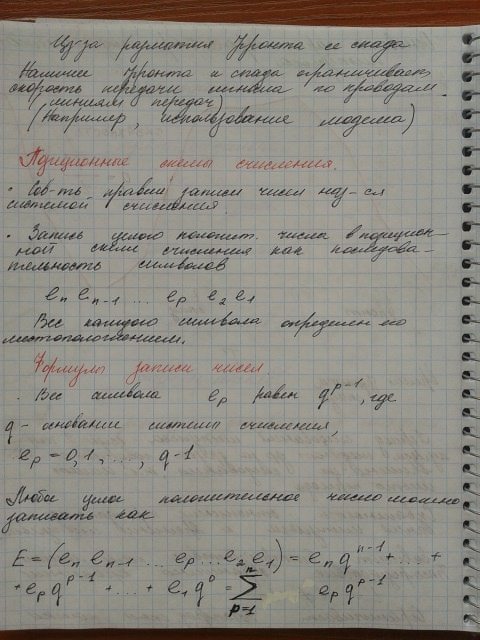 Из-за размытия фронта и спада
Наличие фронта и спада ограничивает
скорость передачи сигнала по проводам
(линиям передач)
(Например, использование модема)
Позиционные схемы счисления.
• Сов-ть правил записи чисел наз-ся
системой счисления
• Запись целого положит. числа в позицион-
ной схеме счисления как последова-
тельность символов
e_n e_{n-1} ... e_p e_2 e_1
Вес каждого символа определен его
местоположением.
Формулы записи чисел.
• Вес символа e_p равен q^{p-1}, где
q - основание системы счисления,
e_p = 0, 1, ..., q-1
Любое целое положительное число можно
записать как
E = (e_n e_{n-1} ... e_p ... e_2 e_1) = e_n q^{n-1} + ... +
+ e_p q^{p-1} + ... + e_1 q^0 = ∑_{p=1}^{n} e_p q^{p-1}